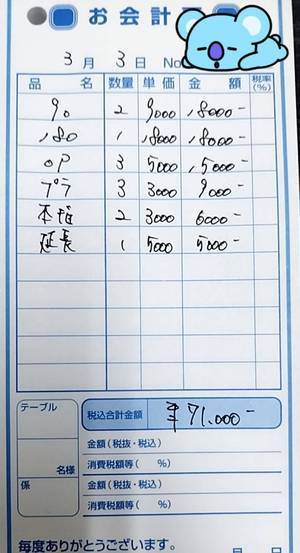 お会計
3月 3日 No
品 名 数量 単価 金 額 税率(%)
90 2 9000 18000-
180 1 18000 18000-
OP 3 5000 15000-
プラ 3 3000 9000-
本指 2 3000 6000-
延長 1 5000 5000-
テーブル
税込合計金額 ¥71.000-
名様
金額(税抜・税込)
消費税額等( %)
係
金額(税抜・税込)
消費税額等( %)
毎度ありがとうございます。
月 日